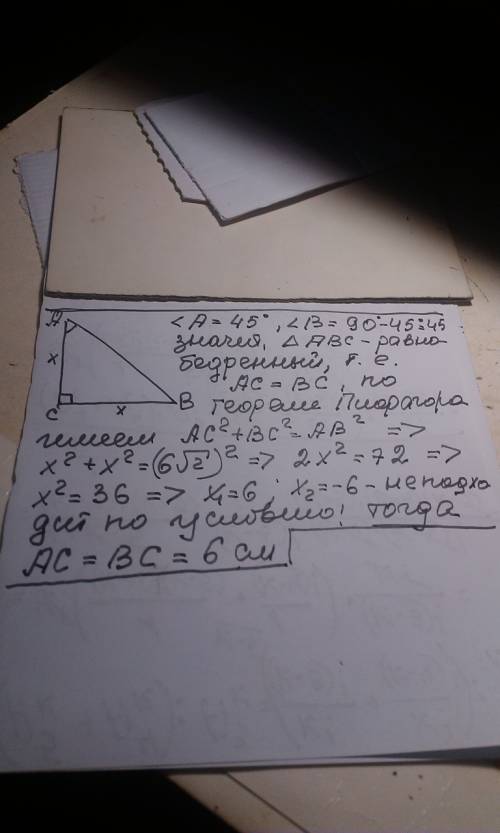 ∠A = 45°, ∠B = 90°-45=45
значит, △ABC - равно-
бедренный, т. е.
AC = BC, по
теореме Пифагора
имеем AC² + BC² = AB² =>
x² + x² = (6√2)² => 2x² = 72 =>
x² = 36 => x₁ = 6; x₂ = -6 - не подхо
дит по условию! тогда
AC = BC = 6 см
A
x
C
x
B